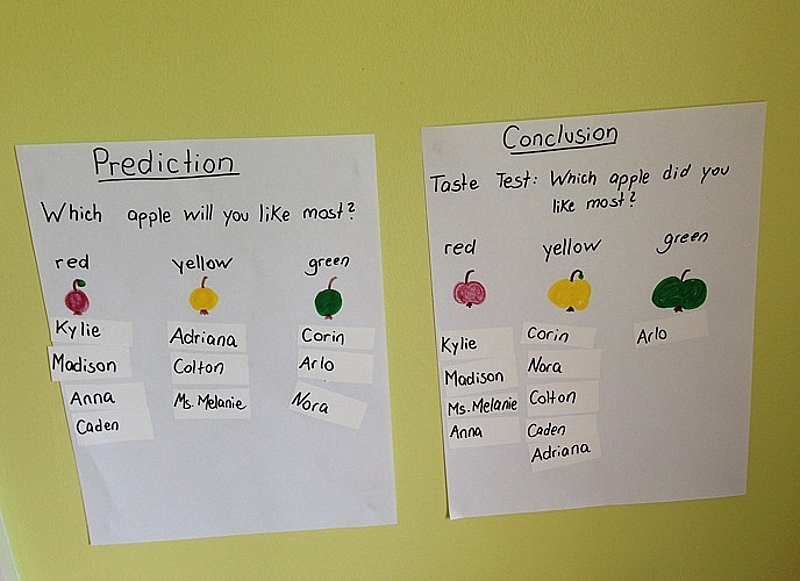 Prediction
Which apple will you like most?
red yellow green
Kylie Adriana Corin
Madison Colton Arlo
Anna Ms. Melanie Nora
Caden
Conclusion
Taste Test: Which apple did you
like most?
red yellow green
Kylie Corin Arlo
Madison Nora
Ms. Melanie Colton
Anna Caden
Adriana